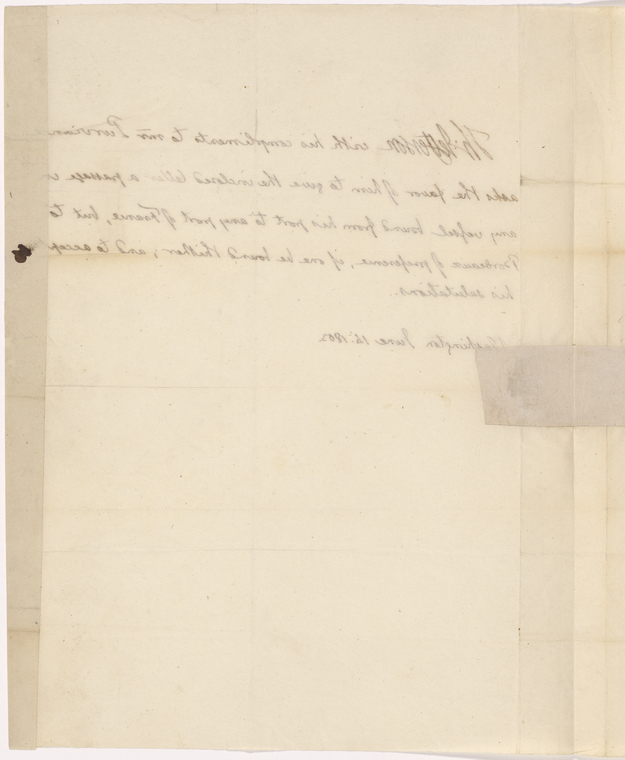 Th: Jefferson with his compliments to mr Purviance
asks the favor of him to give the inclosed letter a passage
any vessel bound from his port to any port of France, but to
Bordeaux if preference, if one be bound thither; and to accept
his salutations.
Washington June 16. 1802